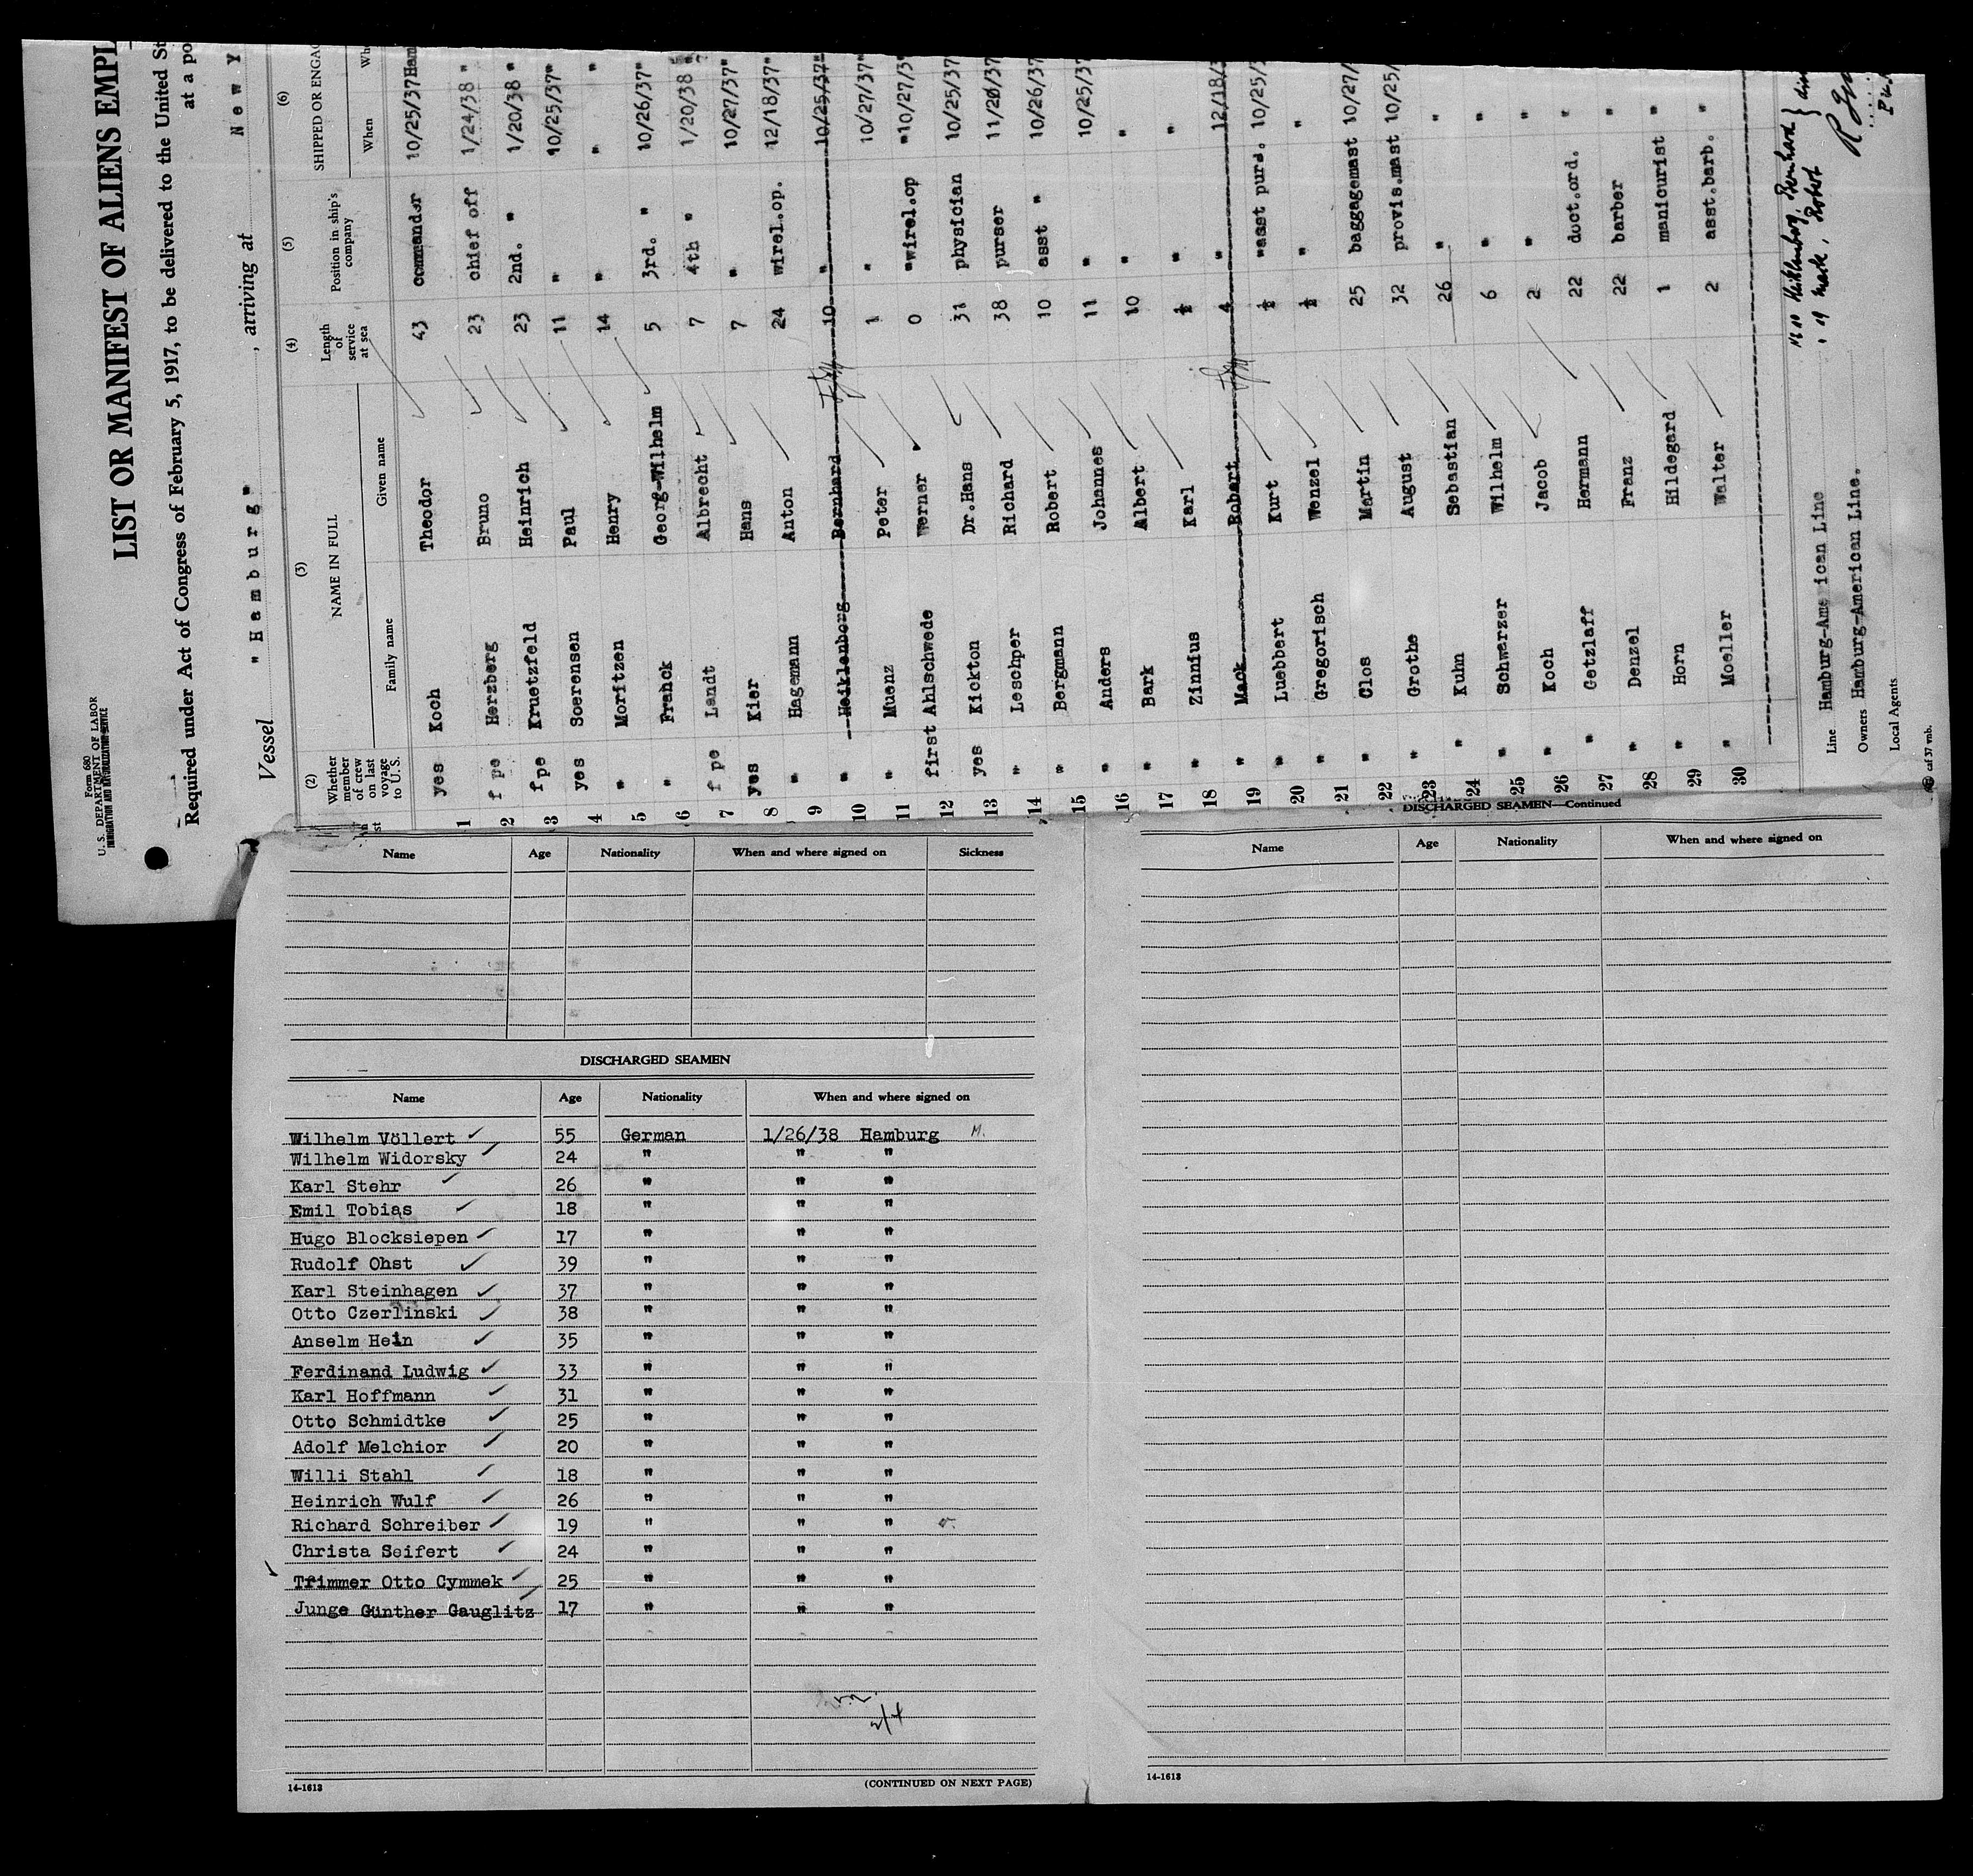 Form 680
U. S. DEPARTMENT OF LABOR
IMMIGRATION AND NATURALIZATION SERVICE
LIST OR MANIFEST OF ALIENS EMPL
Required under Act of Congress of February 5, 1917, to be delivered to the United St
at a po
Vessel "Hamburg" , arriving at New Y
(2) (3) (4) (5) (6)
Whether member of crew on last voyage to U. S. NAME IN FULL Length of service at sea Position in ship's company SHIPPED OR ENGAG
Family name Given name When Whe
yes Koch Theodor 43 commander 10/25/37 Ham
1 f pe Herzberg Bruno 23 chief off 1/24/38 "
2 f pe Kruetzfeld Heinrich 23 2nd. " 1/20/38 "
3 yes Soerensen Paul 11 " 10/25/37"
4 " Moritzen Henry 14 " " "
5 " Franck Georg-Wilhelm 5 3rd. " 10/26/37"
6 f pe Landt Albrecht 7 4th " 1/20/38 "
7 yes Kier Hans 7 " 10/27/37"
8 " Hagemann Anton 24 wirel.op. 12/18/37"
9 " Heiklenborg Bernhard 10 " 10/25/37"
10 " Muenz Peter 1 " 10/27/37"
11 first Ahlschwede Werner 0 "wirel.op "10/27/3
12 yes Kickton Dr.Hans 31 physician 10/25/37
13 " Leschper Richard 38 purser 11/20/37
14 " Bergmann Robert 10 asst " 10/26/37
15 " Anders Johannes 11 " 10/25/37
16 " Bark Albert 10 " "
17 " Zinnius Karl ½ " "
18 " Mack Robert 4 " 12/18/3
19 " Luebbert Kurt ½ "asst purs. 10/25/3
20 " Gregorisch Wenzel ½ " "
21 " Clos Martin 25 baggagemast 10/27/
22 " Grothe August 32 provis.mast 10/25/
23 " Kuhn Sebastian 26 " "
24 " Schwarzer Wilhelm 6 " "
25 " Koch Jacob 2 " "
26 " Getzlaff Hermann 22 doct.ord. "
27 " Denzel Franz 22 barber "
28 " Horn Hildegard 1 manicurist "
29 " Moeller Walter 2 asst.barb. "
30
Heiklenborg, Bernhard
Mack, Robert
Line Hamburg-American Line
Owners Hamburg-American Line.
Local Agents
caf 37 vnb.
Name Age Nationality When and where signed on Sickness
DISCHARGED SEAMEN
Name Age Nationality When and where signed on
Wilhelm Völlert 55 German 1/26/38 Hamburg M.
Wilhelm Widorsky 24 " " "
Karl Stehr 26 " " "
Emil Tobias 18 " " "
Hugo Blocksiepen 17 " " "
Rudolf Ohst 39 " " "
Karl Steinhagen 37 " " "
Otto Czerlinski 38 " " "
Anselm Hein 35 " " "
Ferdinand Ludwig 33 " " "
Karl Hoffmann 31 " " "
Otto Schmidtke 25 " " "
Adolf Melchior 20 " " "
Willi Stahl 18 " " "
Heinrich Wulf 26 " " "
Richard Schreiber 19 " " "
Christa Seifert 24 " " "
Trimmer Otto Cymmek 25 " " "
Junge Günther Gauglitz 17 " " "
14-1613 (CONTINUED ON NEXT PAGE)
DISCHARGED SEAMEN—Continued
Name Age Nationality When and where signed on
14-1613